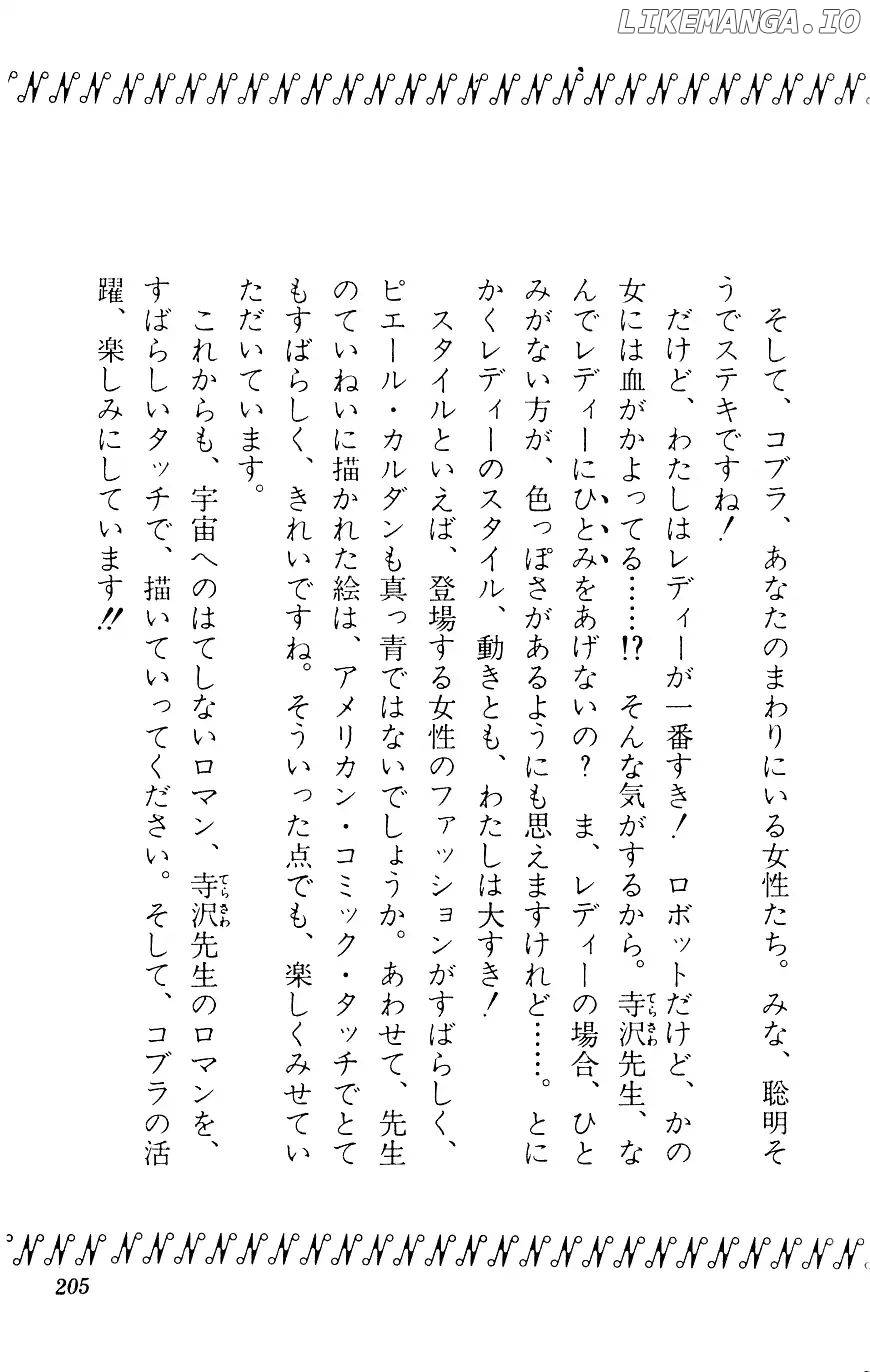 LIKEMANGA.IO
そして、コブラ、あなたのまわりにいる女性たち。みな、聡明そ
うでステキですね！
だけど、わたしはレディーが一番すき！　ロボットだけど、かの
女には血がかよってる……!?　そんな気がするから。寺沢先生、な
んでレディーにひとみをあげないの？　ま、レディーの場合、ひと
みがない方が、色っぽさがあるようにも思えますけれど……。とに
かくレディーのスタイル、動きとも、わたしは大すき！
スタイルといえば、登場する女性のファッションがすばらしく、
ピエール・カルダンも真っ青ではないでしょうか。あわせて、先生
のていねいに描かれた絵は、アメリカン・コミック・タッチでとて
もすばらしく、きれいですね。そういった点でも、楽しくみせてい
ただいています。
これからも、宇宙へのはてしないロマン、寺沢先生のロマンを、
すばらしいタッチで、描いていってください。そして、コブラの活
躍、楽しみにしています!!
205